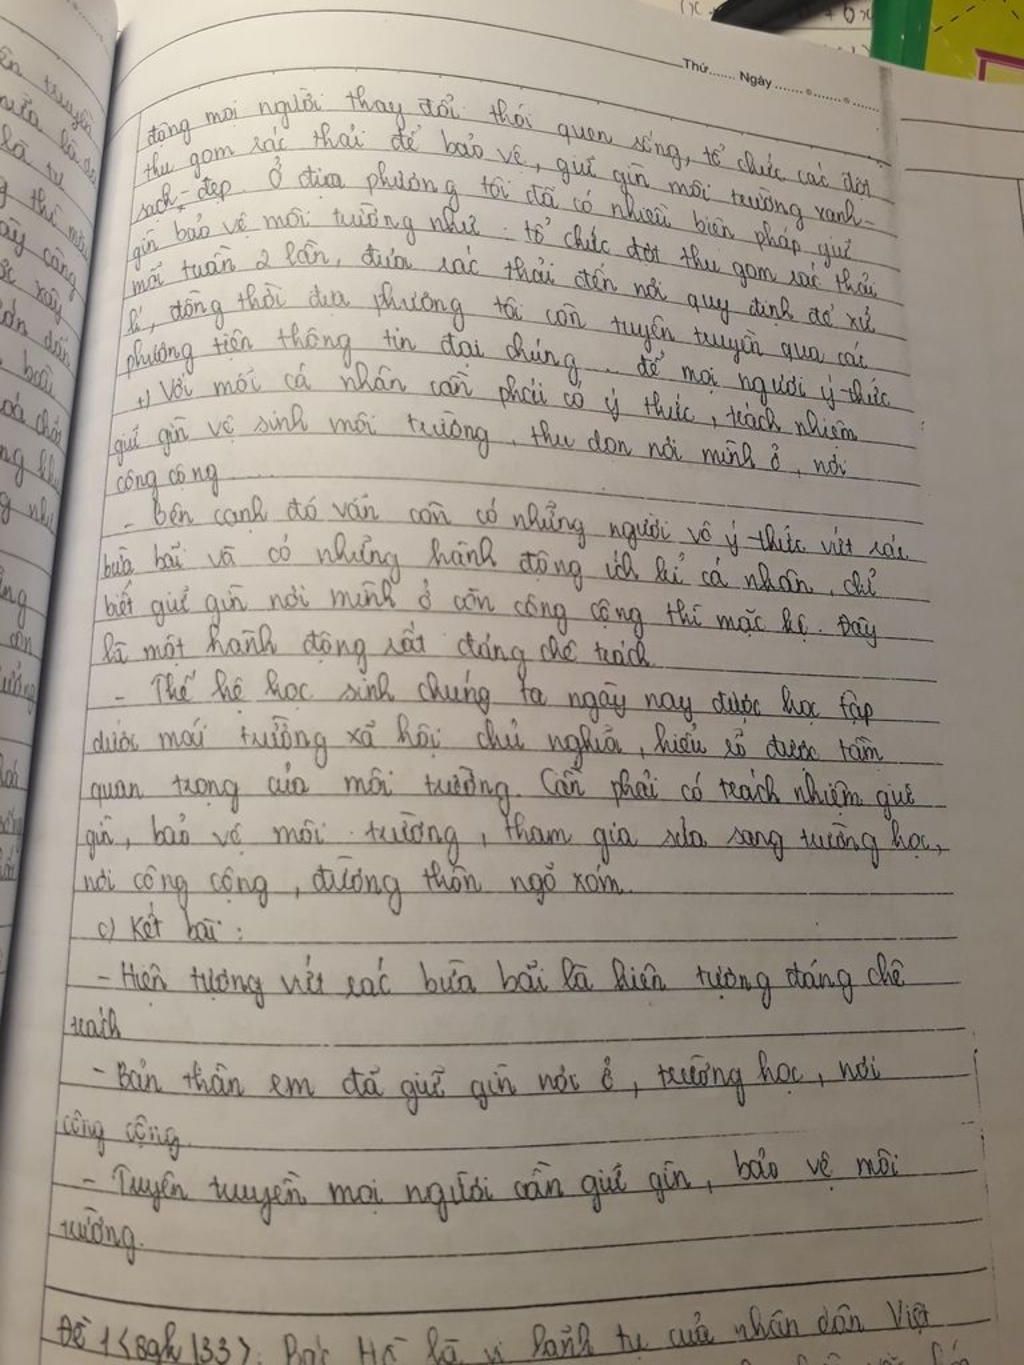 Thứ....... Ngày.......
động mọi người thay đổi thói quen sống, tổ chức các đợt
thu gom rác thải để bảo vệ, giữ gìn môi trường xanh-
sạch-đẹp. Ở địa phương tôi đã có nhiều biện pháp giữ
gìn bảo vệ môi trường như: tổ chức đợt thu gom rác thải
mỗi tuần 2 lần, đưa rác thải đến nơi quy định để xử
lí, đồng thời địa phương tôi còn tuyên truyền qua các
phương tiện thông tin đại chúng... để mọi người ý thức
+) Với mỗi cá nhân cần phải có ý thức, trách nhiệm
giữ gìn vệ sinh môi trường, thu dọn nơi mình ở, nơi
công cộng
- Bên cạnh đó vẫn còn có những người vô ý thức vứt rác
bừa bãi và có những hành động ích kỉ cá nhân, chỉ
biết giữ gìn nơi mình ở còn công cộng thì mặc kệ. Đây
là một hành động rất đáng chê trách
- Thế hệ học sinh chúng ta ngày nay được học tập
dưới mái trường xã hội chủ nghĩa, hiểu rõ được tầm
quan trọng của môi trường. Cần phải có trách nhiệm giữ
gìn, bảo vệ môi trường, tham gia sửa sang trường học,
nơi công cộng, đường thôn ngõ xóm.
c) Kết bài:
- Hiện tượng vứt rác bừa bãi là hiện tượng đáng chê
trách
- Bản thân em đã giữ gìn nơi ở, trường học, nơi
công cộng.
- Tuyên truyền mọi người cần giữ gìn, bảo vệ môi
trường.
Đề 1 <sgk/33>: Bác Hồ là vị lãnh tụ của nhân dân Việt